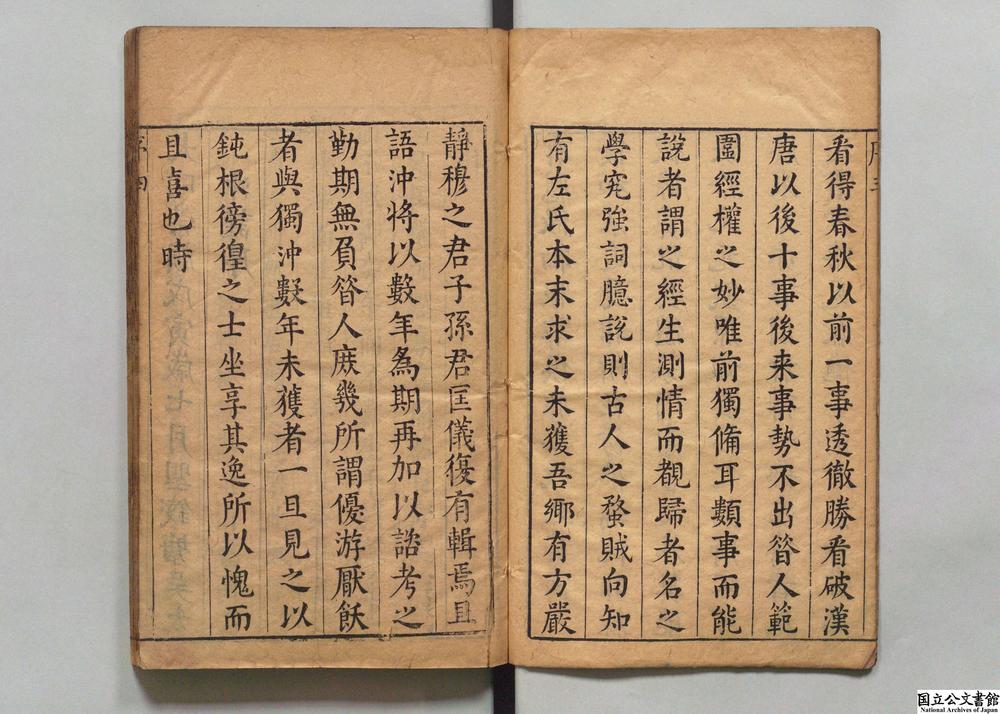 看得春秋以前一事透徹勝看破漢
唐以後十事後来事勢不出昝人範
圍經權之妙唯前獨俻耳類事而能
說者謂之經生測情而覩歸者名之
學究強詞臆說則古人之蝥賊向知
有左氏本末求之未獲吾鄉有方嚴
靜穆之君子孫君匡儀復有輯焉且
語沖將以數年為期再加以諮考之
勤期無負昝人庻幾所謂優游厭飫
者與獨沖數年未獲者一旦見之以
鈍根徬徨之士坐享其逸所以愧而
且喜也時
国立公文書館
National Archives of Japan